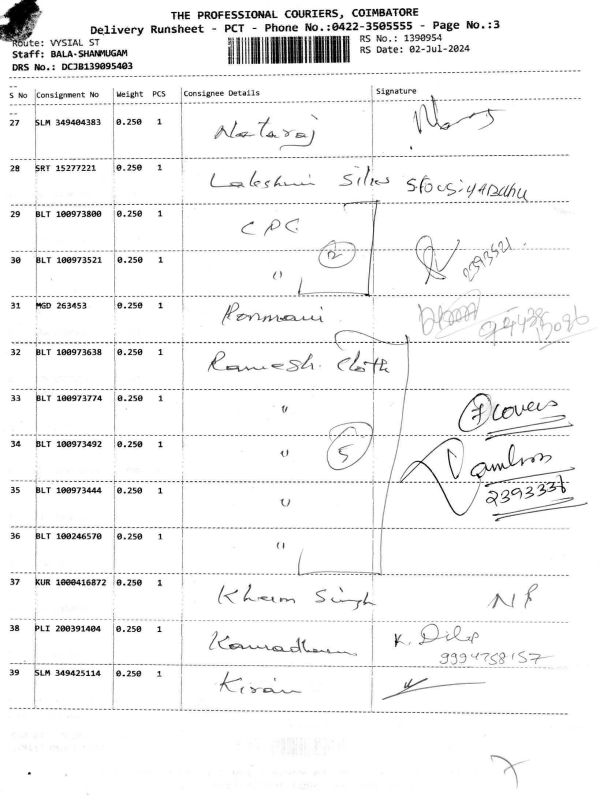 THE PROFESSIONAL COURIERS, COIMBATORE
Delivery Runsheet - PCT - Phone No.:0422-3505555 - Page No.:3
Route: VYSIAL ST
RS No.: 1390954
Staff: BALA-SHANMUGAM
RS Date: 02-Jul-2024
DRS No.: DCJB139095403
--
S No Consignment No Weight PCS Consignee Details Signature
--
27 SLM 349404383 0.250 1 Nataraj
28 SRT 15277221 0.250 1 Lakshmi Silks
29 BLT 100973800 0.250 1 CPC
30 BLT 100973521 0.250 1 " 2 2393521
31 MGD 263453 0.250 1 Ponmani
32 BLT 100973638 0.250 1 Ramesh Cloth
33 BLT 100973774 0.250 1 " 7 covers
34 BLT 100973492 0.250 1 " 5
35 BLT 100973444 0.250 1 " 2393336
36 BLT 100246570 0.250 1 "
37 KUR 1000416872 0.250 1 Kheem Singh
38 PLI 200391404 0.250 1 K. Dilip
9994758157
39 SLM 349425114 0.250 1 Kiran